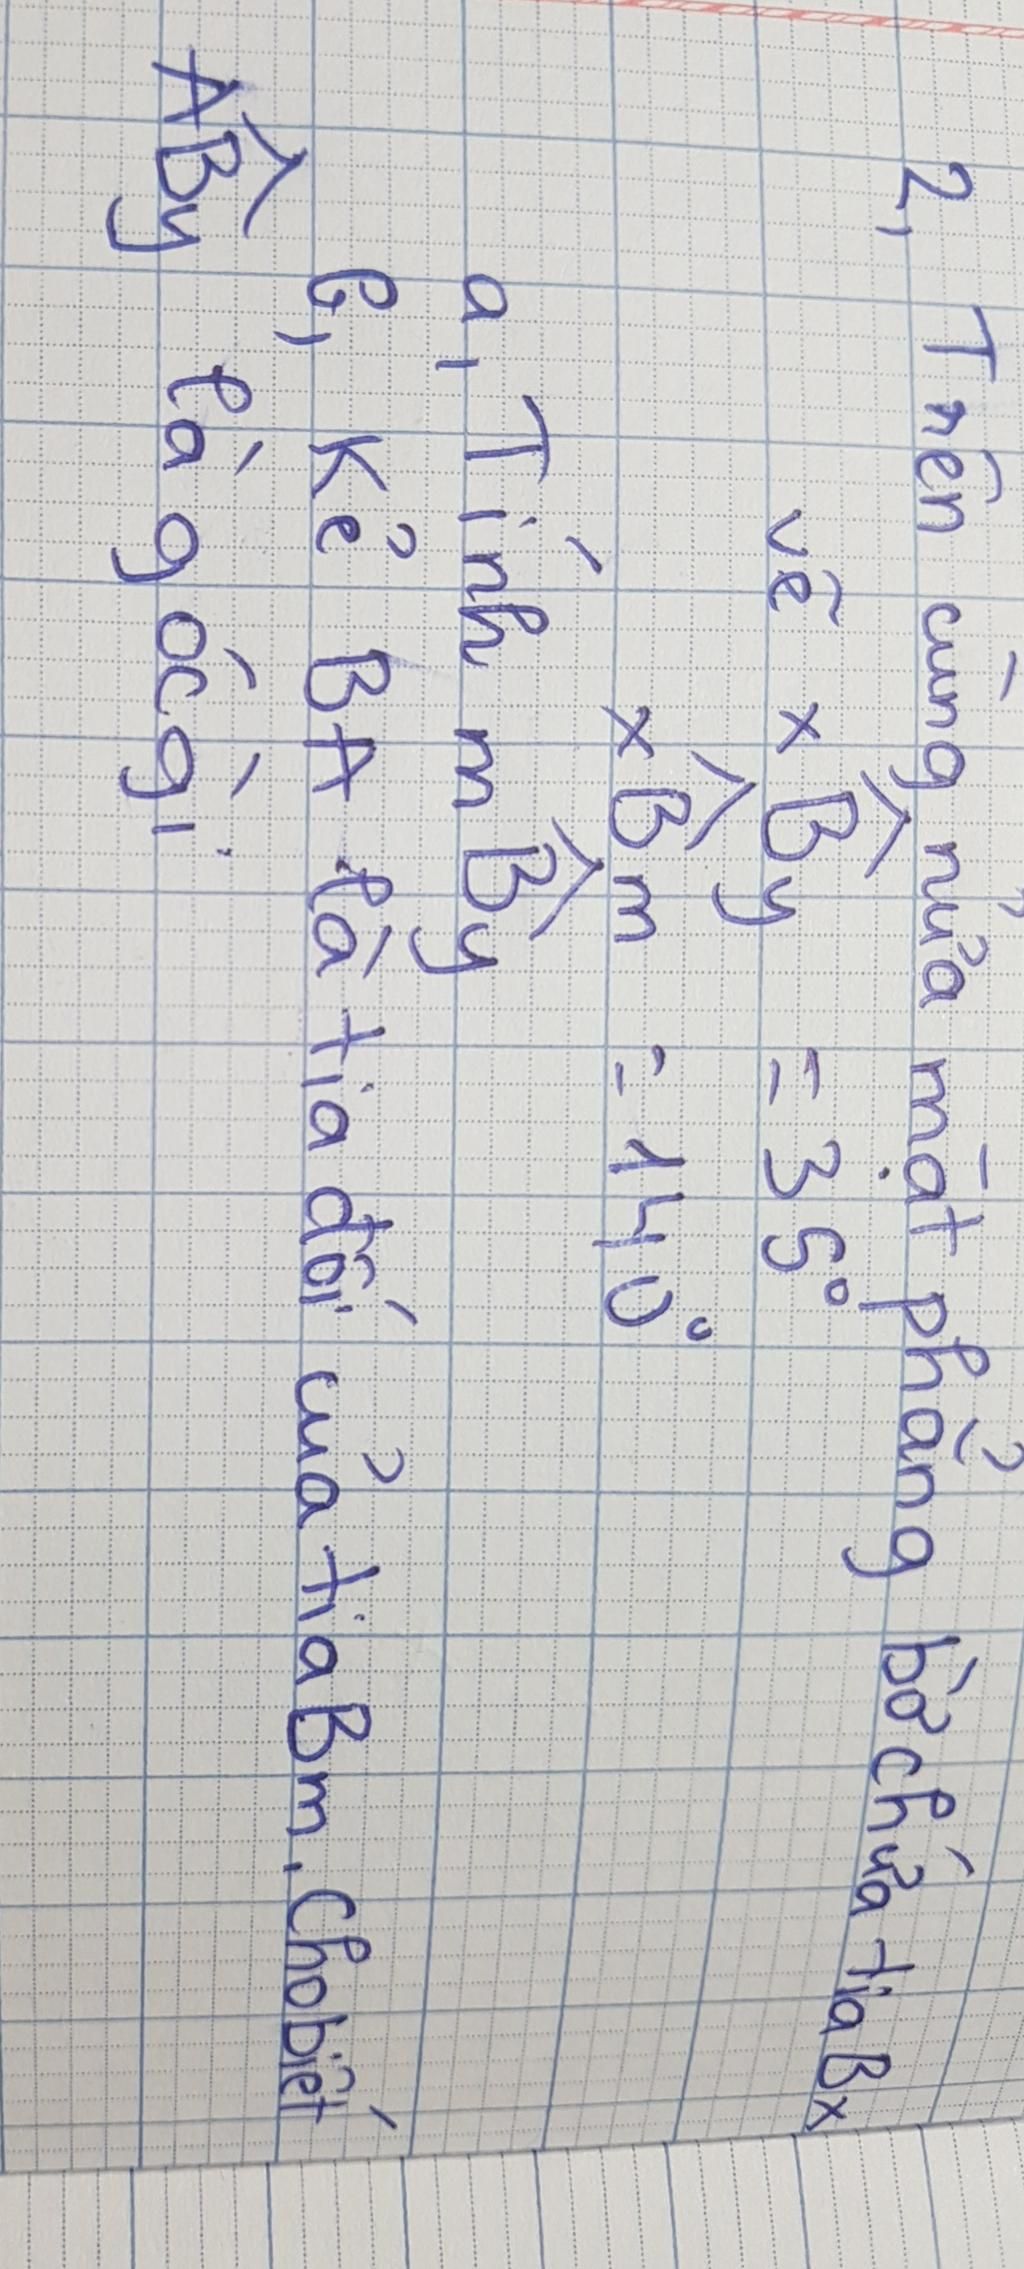 2, Trên cùng nửa mặt phẳng bờ chứa tia Bx
vẽ xBy = 35°
xBm = 140°
a, Tính mBy
b, Kẻ BA là tia đối của tia Bm. Cho biết
ABy là góc gì